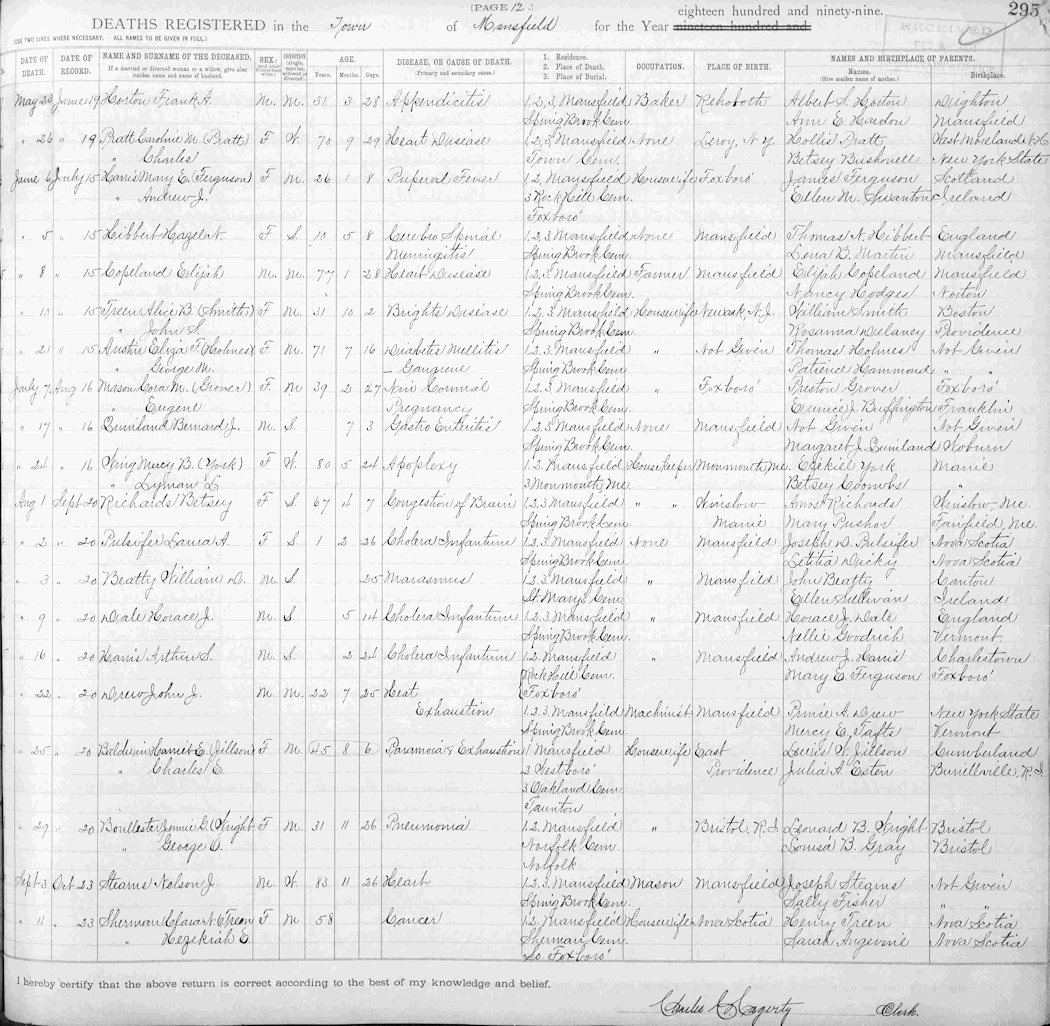 [PAGE 12.]
eighteen hundred and ninety-nine.
295
DEATHS REGISTERED in the Town of Mansfield for the Year nineteen hundred and
RECEIVED
(USE TWO LINES WHERE NECESSARY. ALL NAMES TO BE GIVEN IN FULL.)
DATE OF DEATH. DATE OF RECORD. NAME AND SURNAME OF THE DECEASED. SEX: CONDITION AGE. DISEASE, OR CAUSE OF DEATH. 1. Residence. OCCUPATION. PLACE OF BIRTH. NAMES AND BIRTHPLACE OF PARENTS.
If a married or divorced woman or a widow, give also maiden name and name of husband. Years. Months. Days. (Primary and secondary cause.) 2. Place of Death. Names. Birthplace.
3. Place of Burial. (Give maiden name of mother.)
May 20 June 19 Horton Frank A. M. M. 31 3 28 Appendicitis 1,2,3, Mansfield Baker Rehoboth Albert S. Horton Dighton
Spring Brook Cem. Ann E. Mansfield
" 26 " 19 Pratt Caroline M. (Pratt) F W. 70 9 29 Heart Disease 1,2,3 Mansfield None Leroy, N.Y. Hollis Pratt West Moreland N.H.
" Charles Town Cem. Betsey Bushnell New York State
June 6 July 15 Harris Mary E. (Ferguson) F M. 26 1 8 Puperal Fever 1,2, Mansfield Housewife Foxboro' James Ferguson Scotland
" Andrew J. 3 Rock Hill Cem. Ellen M. Swanton Ireland
Foxboro'
" 5 " 15 Hibbert Hazel N. F S. 10 5 8 Cerebro Spinal 1,2,3 Mansfield None Mansfield Thomas N. Hibbert England
Meningitis Spring Brook Cem. Lena B. Martin Mansfield
" 8 " 15 Copeland Elijah M. M. 77 1 28 Heart Disease 1,2,3 Mansfield Farmer Mansfield Elijah Copeland Mansfield
Spring Brook Cem. Nancy Hodges Norton
" 10 " 15 Treen Alice B. (Smith) F M. 31 10 2 Brights Disease 1,2,3 Mansfield Housewife Newark, N.J. William Smith Boston
" John S. Spring Brook Cem. Rosanna Delaney Providence
" 21 " 15 Austin Eliza T. (Holmes) F M. 71 7 16 Diabetes Mellitis 1,2,3 Mansfield " Not Given Thomas Holmes Not Given
" George M. – Gangrene Spring Brook Cem. Patience Hammond " "
July 7 Aug 16 Mason Cora M. (Grover) F M 39 2 27 Pregnancy 1,2,3 Mansfield " Foxboro' Preston Grover Foxboro'
" Eugene Spring Brook Cem. Eunice J. Buffington Franklin
" 17 " 16 Quinland Bernard J. M. S. 7 3 Gastro Enteritis 1,2,3 Mansfield None Mansfield Not Given Not Given
Spring Brook Cem. Margaret J. Quinland Woburn
" 24 " 16 King Mercy B. (York) F W. 80 5 24 Apoplexy 1,2, Mansfield Housekeeper Monmouth, Me. Ezekiel York Maine
" Lyman L 3 Monmouth, Me. Betsey Coombs "
Aug 1 Sept 20 Richards Betsey F S. 67 4 7 Congestion of Brain 1,2,3 Mansfield " " Winslow Amos Richards Winslow, Me.
Spring Brook Cem. Maine Mary Pushor Fairfield, Me.
" 2 " 20 Pulsifer Laura A. F S. 1 2 26 Cholera Infantum 1,2,3 Mansfield None Mansfield Joseph D. Pulsifer Nova Scotia
Spring Brook Cem. Letitia Dicky Nova Scotia
" 3 " 20 Beatty William D. M. S. 25 Marasmus 1,2,3 Mansfield " Mansfield John Beatty Canton
St. Mary's Cem. Ellen Sullivan Ireland
" 9 " 20 Dale Horace J. M. S. 5 14 Cholera Infantum 1,2,3 Mansfield " Mansfield Horace J. Dale England
Spring Brook Cem. Nellie Goodrich Vermont
" 16 " 20 Harris Arthur S. M. S. 2 24 Cholera Infantum 1,2, Mansfield " Mansfield Andrew J. Harris Charlestown
Rock Hill Cem. Mary E. Ferguson Foxboro'
" 22 " 20 Drew John J. M. M. 22 7 25 Heat Foxboro'
Exhaustion 1,2,3, Mansfield Machinist Mansfield Prince A. Drew New York State
Spring Brook Cem. Mercy E. Tafts Vermont
" 25 " 20 Baldwin Harriet E. (Jillson) F M. 45 8 6 Paranoia & Exhaustion 1 Mansfield Housewife East Lewis W. Jillson Cumberland
" Charles E. 2 Westboro' Providence Julia A. Esten Burrillville, R.I.
3 Oakland Cem.
Taunton
" 29 " 20 Boullester Jennie G. (Wright F M. 31 11 26 Pneumonia 1,2, Mansfield " Bristol, R.I. Leonard B. Wright Bristol
" George O. Norfolk Cem. Louisa B. Gray Bristol
Norfolk
Sept 3 Oct 23 Stearns Nelson J. M. W. 83 11 26 Heart 1,2,3, Mansfield Mason Mansfield Joseph Stearns Not Given
Spring Brook Cem. Sally Fisher " "
" 11 " 23 Sherman Clara N. (Treen F M. 58 Cancer 1,2, Mansfield Housewife Nova Scotia Henry Treen Nova Scotia
" Hezekiah E. Sherman Cem. Sarah Angevine Nova Scotia
So. Foxboro'
I hereby certify that the above return is correct according to the best of my knowledge and belief.
Charles C. Hagerty Clerk.